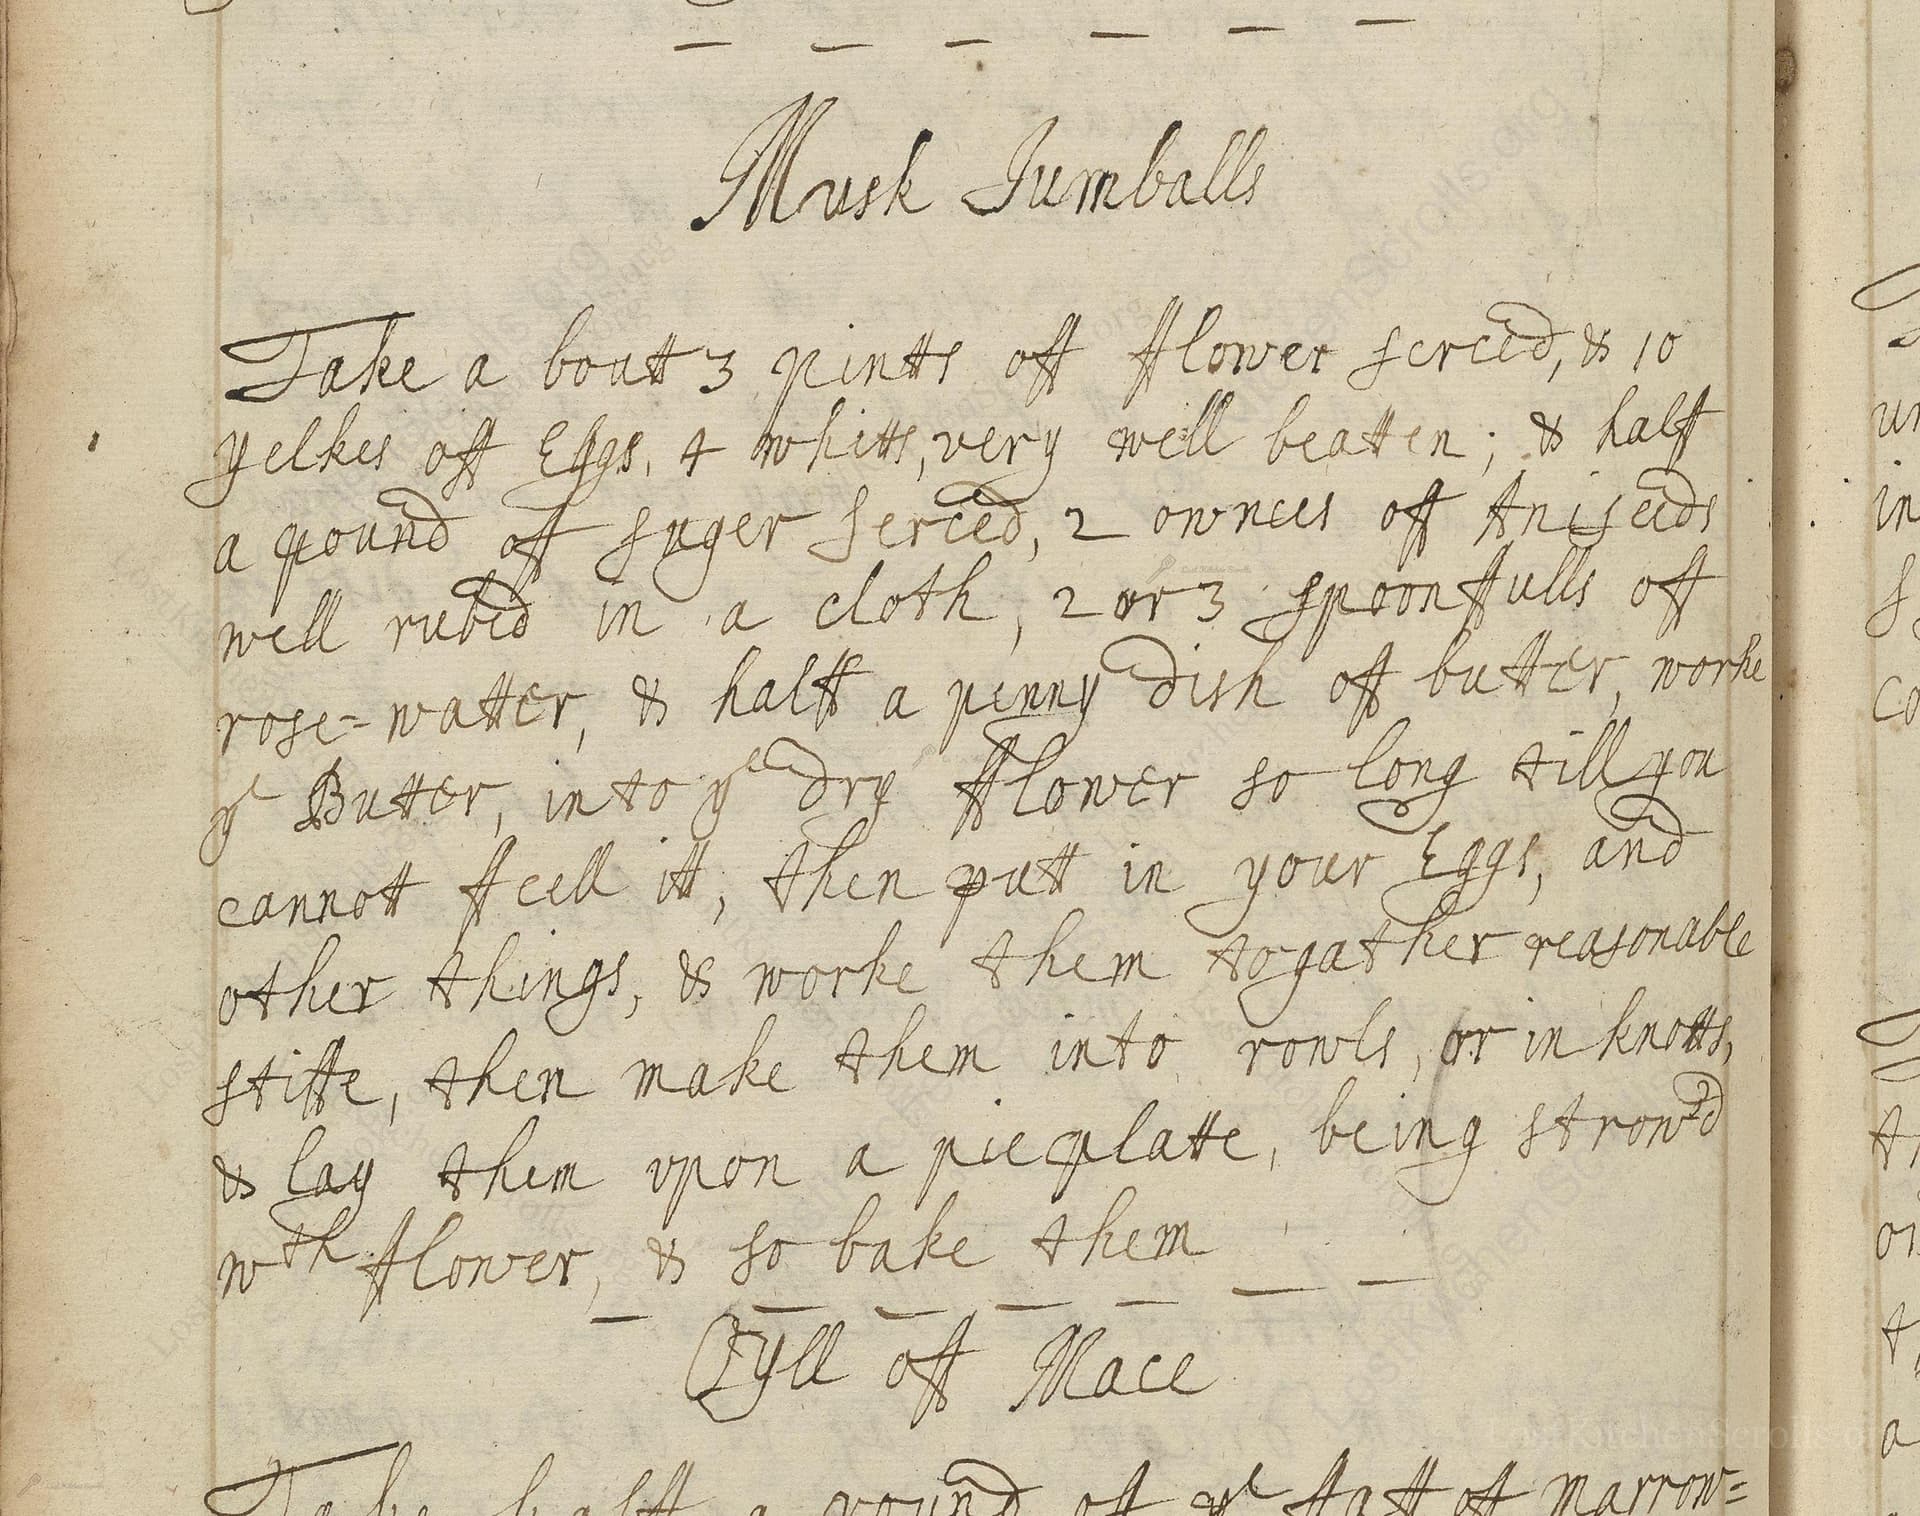 Musk Jumballs
Take a boutt 3 pintts off fflower serced, & 10
yelkes off Eggs, 4 whitts, very well beatten; & halff
a pound off suger serced, 2 ownces off Aniseeds
well rubed in a cloth, 2 or 3 spoonffulls off
rose=watter, & halff a penny dish off butter, worke
ye Butter, into ye dry fflower so long till you
cannott ffeell itt, then putt in your Eggs, and
other things, & worke them togather reasonable
stiffe, then make them into rowls, or in knotts,
& lay them upon a pieplatte, being strow'd
wth fflower, & so bake them
Oyll off Mace
Take halff a pound off ye ffatt off marrow=